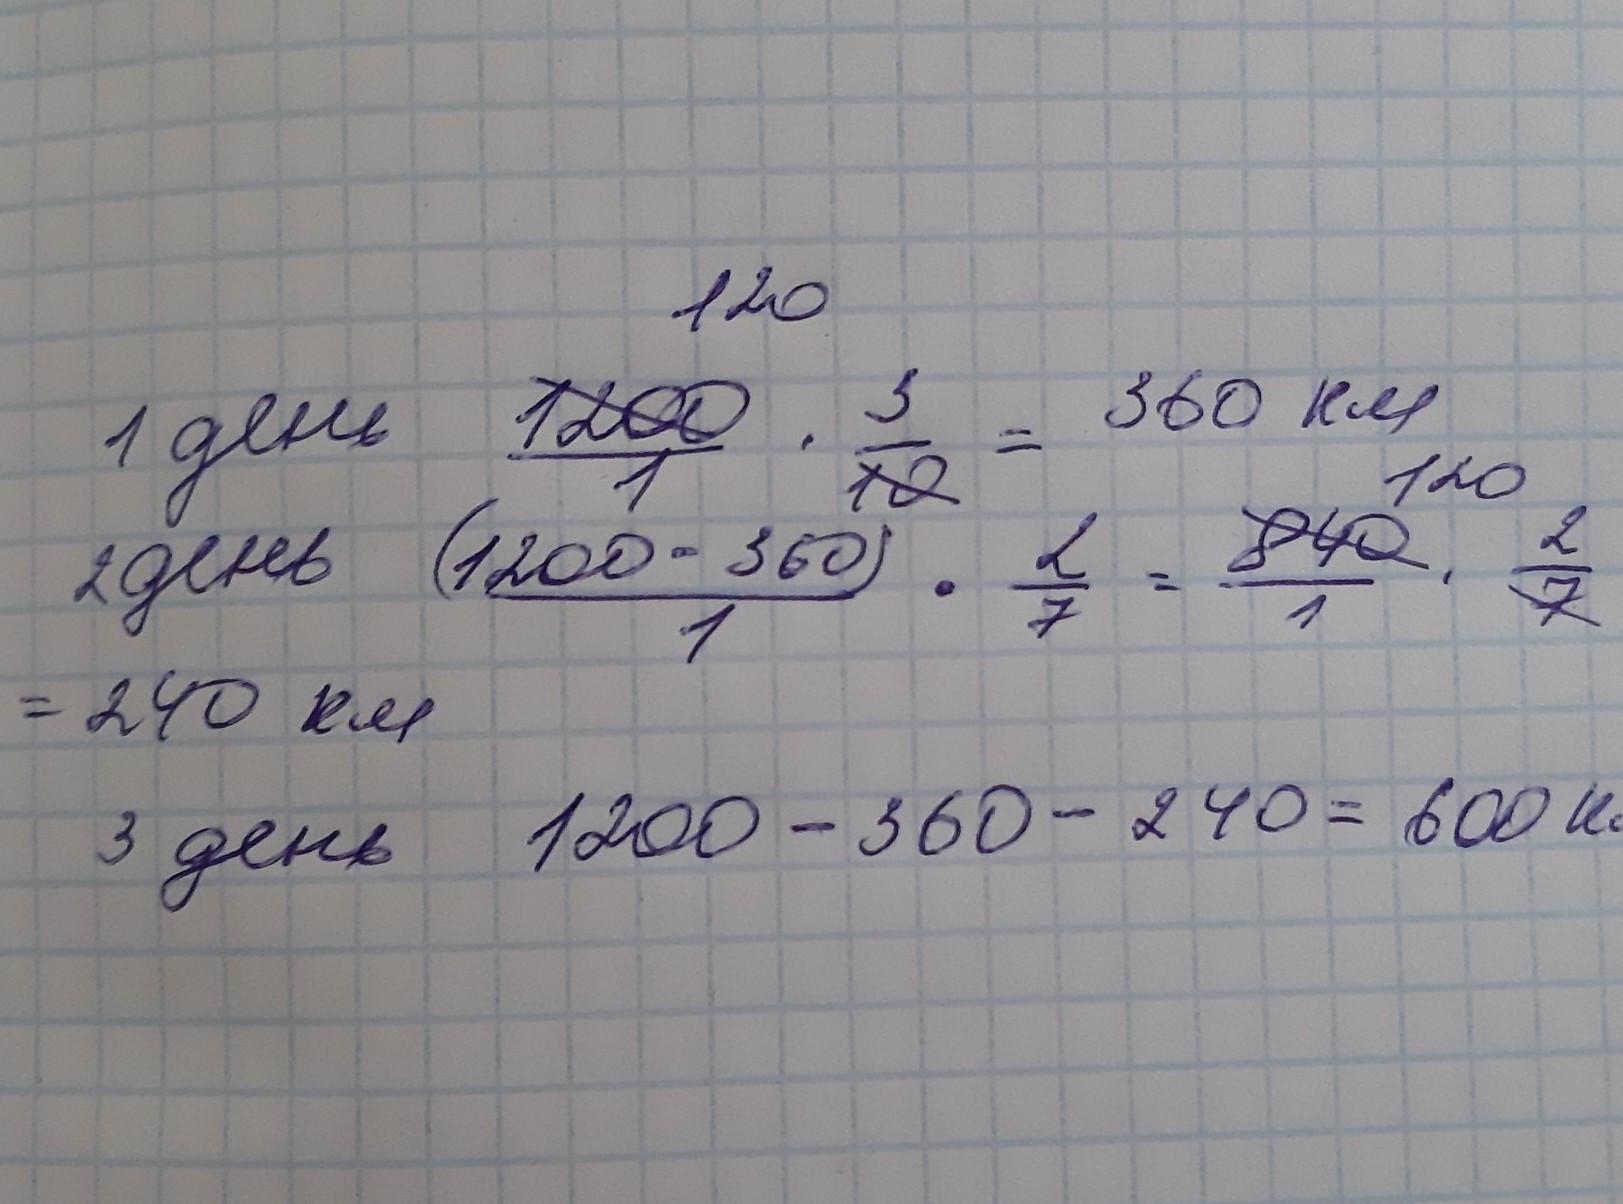 120
1 день 1200/1 · 3/10 = 360 км
120
2 день (1200 - 360)/1 · 2/7 = 840/1 · 2/7
= 240 км
3 день 1200 - 360 - 240 = 600 к